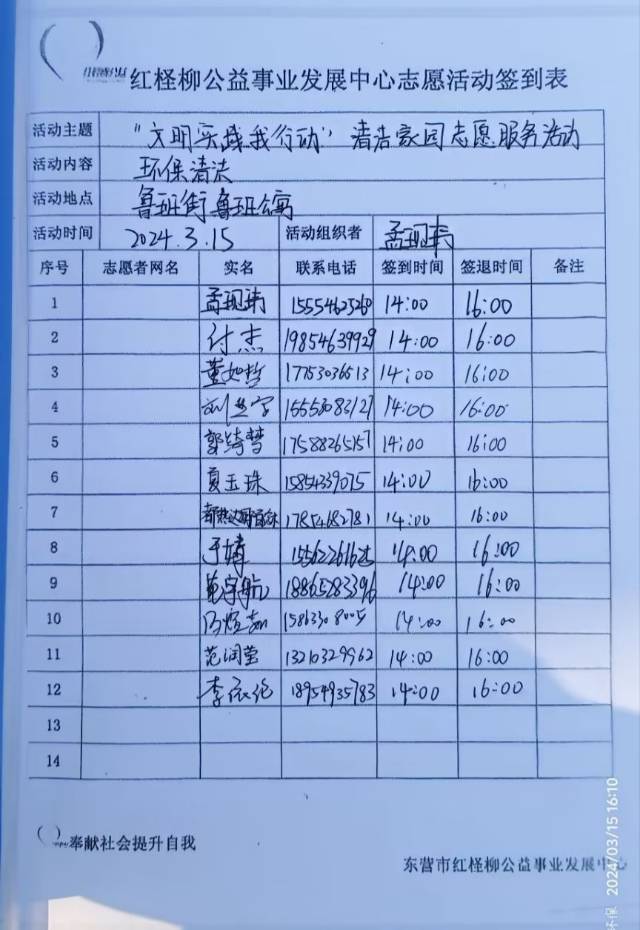 红柽柳公益事业发展中心志愿活动签到表
活动主题 “文明实践我行动”清洁家园志愿服务活动
活动内容 环保清洁
活动地点 鲁班街鲁班公寓
活动时间 2024.3.15 活动组织者
序号 志愿者网名 实名 联系电话 签到时间 签退时间 备注
1 14:00 16:00
2 付杰 19854639929 14:00 16:00
3 董如哲 14:00 16:00
4 15553083127 14:00 16:00
5 郭绮梦 17588265157 14:00 16:00
6 夏玉珠 15854339075 14:00 16:00
7 17854182781 14:00 16:00
8 14:00 16:00
9 18865283396 14:00 16:00
10 15863308005 14:00 16:00
11 范润莹 13210329962 14:00 16:00
12 李依伦 18954935783 14:00 16:00
13
14
奉献社会提升自我
东营市红柽柳公益事业发展中心
2024/03/15 16:10
环保